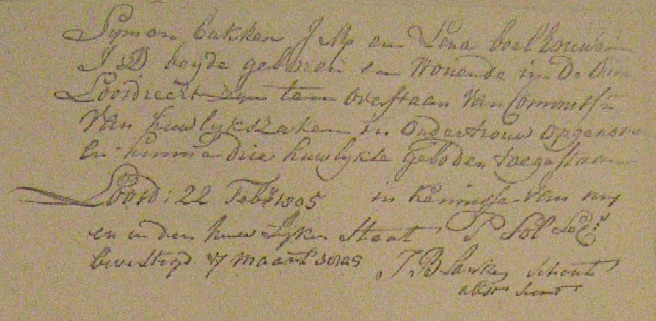 Symon Bakker J M en Lena boelhouwer
J D beyde geboren en Wonende in De Oude
Loosdrecht zyn ten overstaan Van Commissn
Van huwlykszaken in Ondertrouw Opgenomen
En hunne drie huwlykse Geboden toegestaan
Loosd: 22 Feb 1805 in kennisse van my
en in den huwlyken Staat P Sol Sec
bevestigd 7 maart 1805 Schout